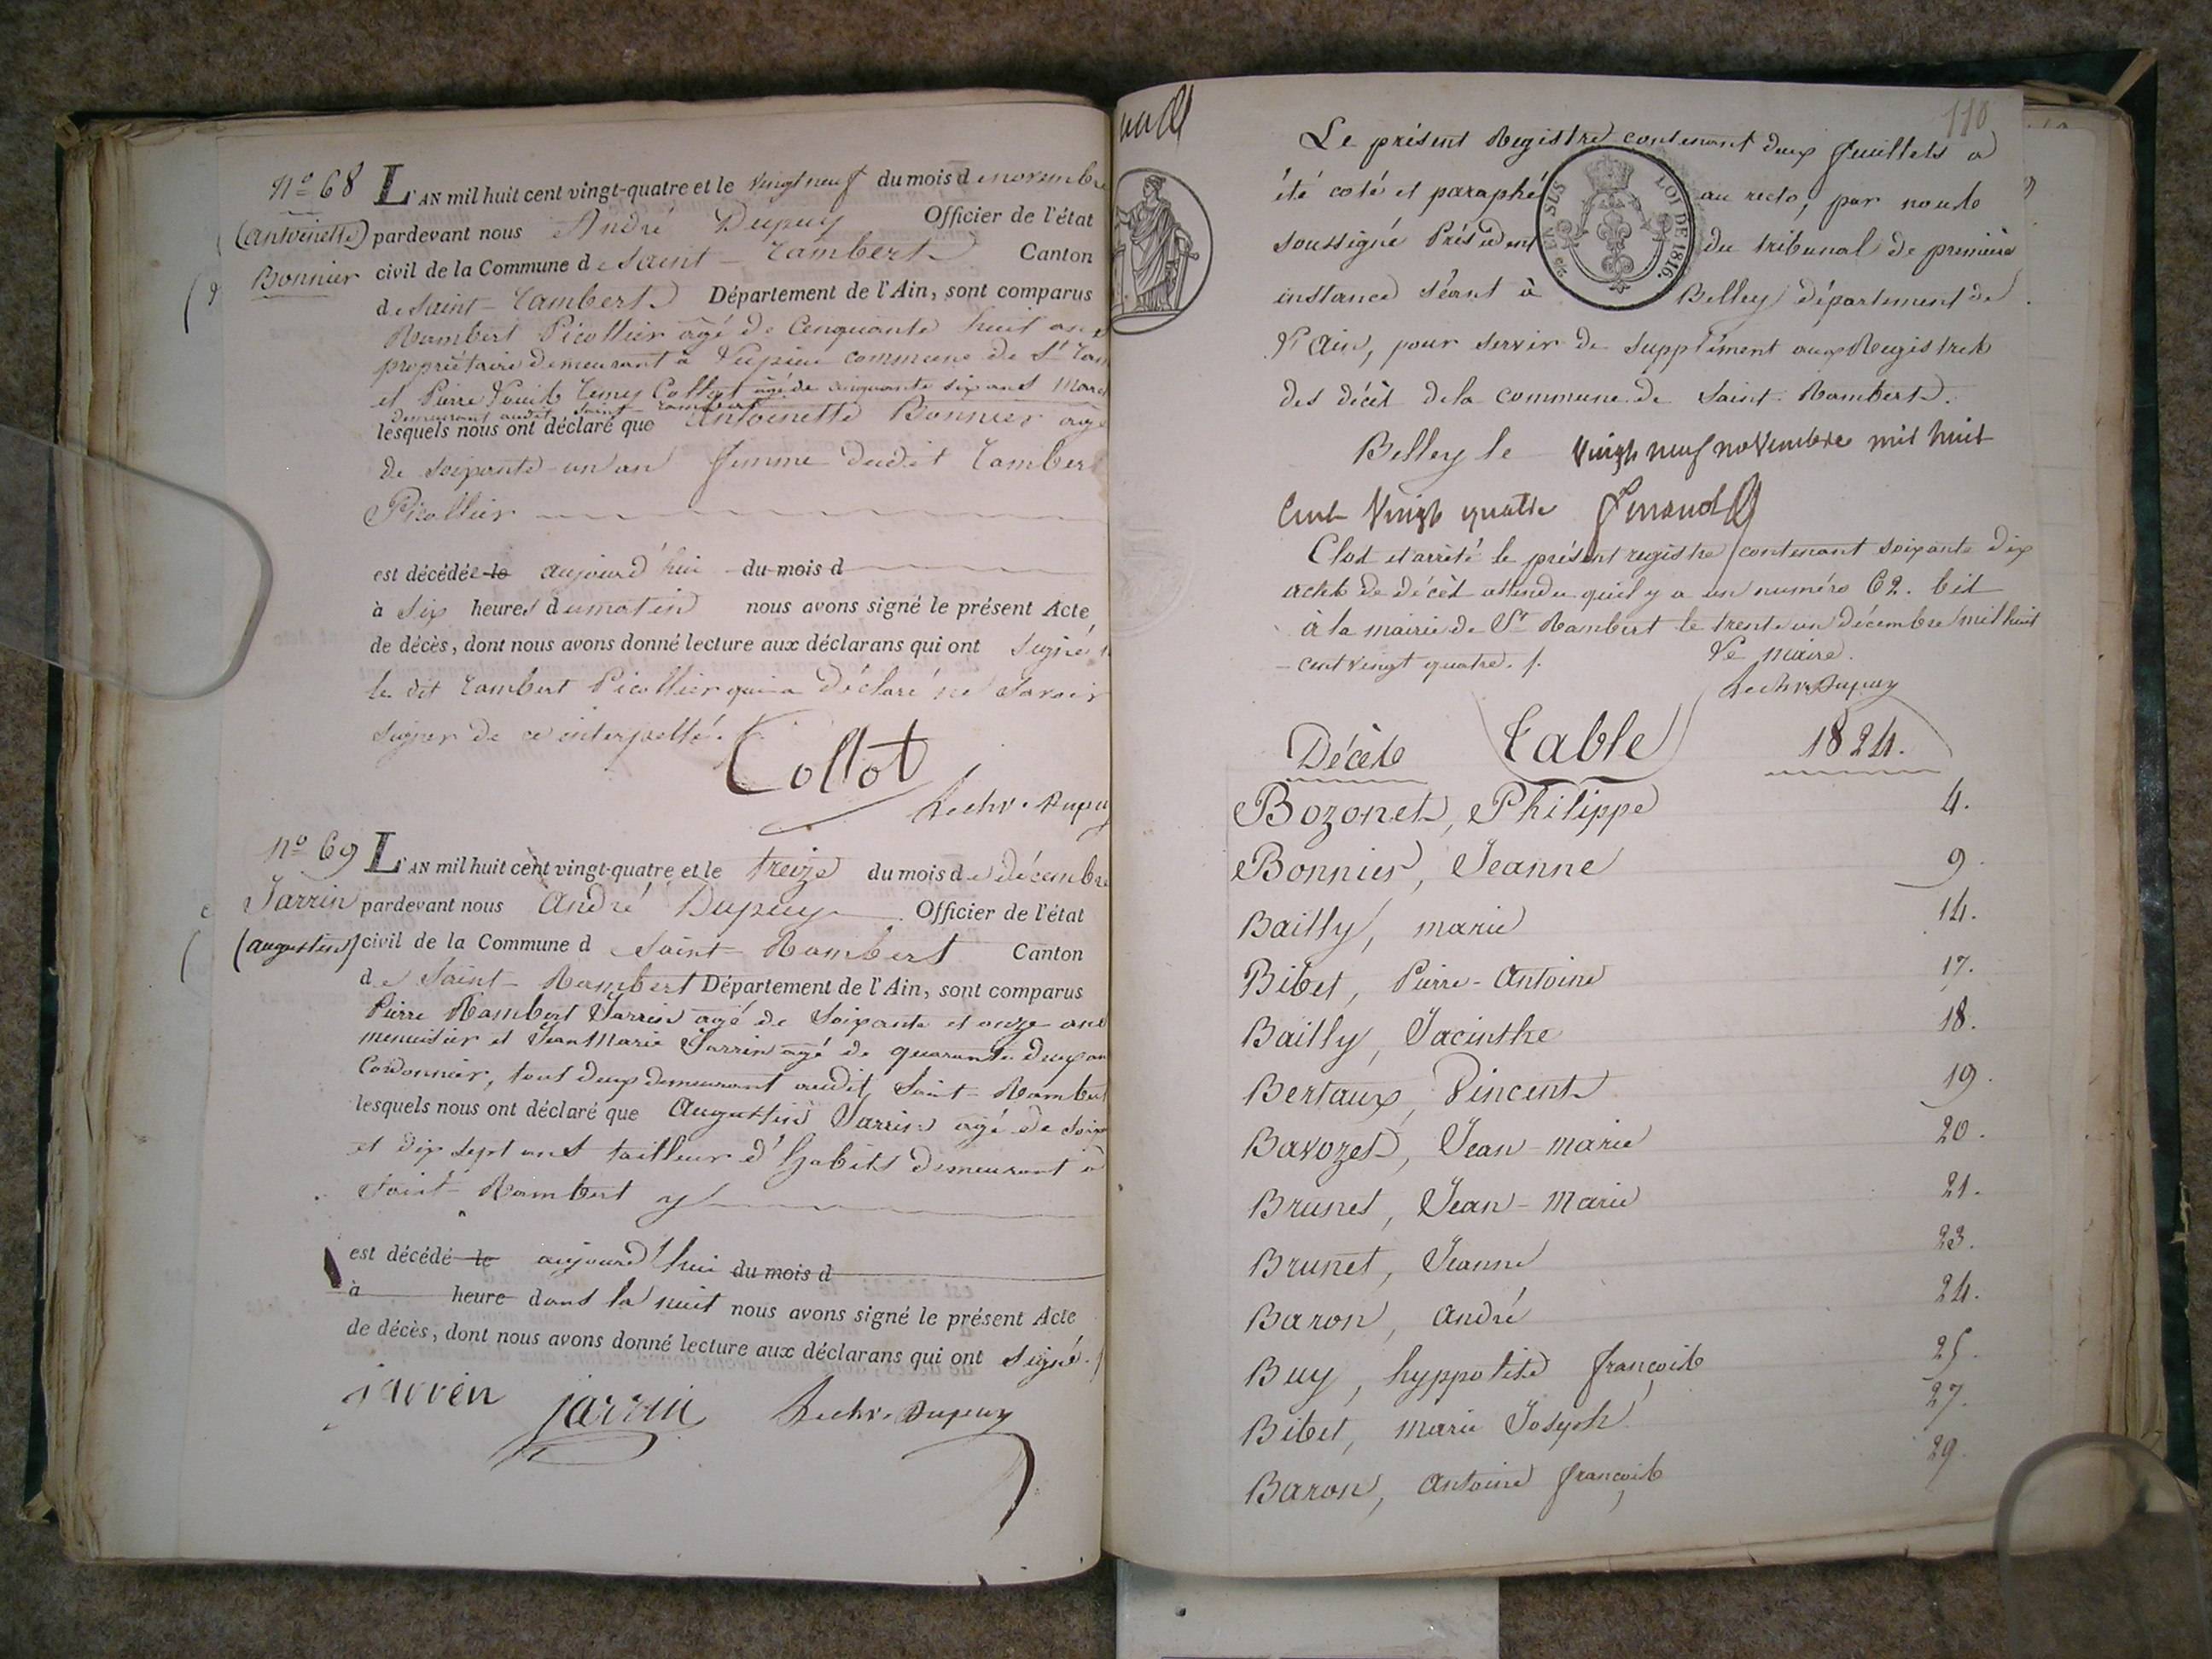 N.o 68
(antoinette)
Bonnier
L'AN mil huit cent vingt-quatre et le vingt neuf du mois de novembre
pardevant nous André Dupuy Officier de l'état
civil de la Commune de Saint-Rambert Canton
de Saint-Rambert Département de l'Ain, sont comparus
Rambert Picollier agé de Cenquante huit ans
propriétaire demeurant à commune de St Ram
et Pierre Louis Remy Collot âgé de cinquante six ans
demeurant audit Saint-Rambert
lesquels nous ont déclaré que Antoinette Bonnier agé
de soixante-un an femme dudit Rambert
Picollier
est décédée le aujourd'hui du mois d
à six heures du matin nous avons signé le présent Acte
de décès, dont nous avons donné lecture aux déclarans qui ont signé
le dit Rambert Picollier qui a déclaré ne savoir
signer de ce interpellé.
Collot
Dupuy
N.o 69
Jarrin
(augustin)
L'AN mil huit cent vingt-quatre et le treize du mois de décembre
pardevant nous André Dupuy Officier de l'état
civil de la Commune d Saint-Rambert Canton
de Saint-Rambert Département de l'Ain, sont comparus
Pierre Rambert Jarrin agé de soixante et onze ans
menuisier et Jean Marie Jarrin agé de quarante deux an
Cordonnier, tous deux demeurant audit Saint-Rambert
lesquels nous ont déclaré que Augustin Jarrin agé de soix
et dix sept ans tailleur d'habits demeurant à
Saint-Rambert
est décédé le aujourd'hui du mois d
à heure dans la nuit nous avons signé le présent Acte
de décès, dont nous avons donné lecture aux déclarans qui ont signé.
jarrin jarrin Dupuy
110
Le présent Registre contenant deux feuillets a
été coté et paraphé au recto, par nous
soussigné Président du tribunal de première
instance séant à Belley département de
l'Ain, pour servir de supplément aux Registres
des décès de la commune de Saint-Rambert.
EN SUS
LOI DE 1816.
Belley le vingt neuf novembre mil huit
Cent Vingt quatre
Clos et arrêté le présent registre contenant soixante dix
actes de décès attendu qu'il y a un numéro 62. bis
à la mairie de St Rambert le trente un décembre mil huit
cent vingt quatre.
Le maire.
Dupuy
Décès Table 1824.
Bozonet, Philippe 4.
Bonnier, Jeanne 9.
Bailly, marie 14.
Bibet, Pierre-Antoine 17.
Bailly, Jacinthe 18.
Bertaux, Vincent 19.
Bavozet, Jean-marie 20.
Brunet, Jean-Marie 21.
Brunet, Jeanne 23.
Baron, André 24.
Buy, hyppolite françois 25.
Bibet, marie Joseph 27.
Baron, Antoine françois 29.